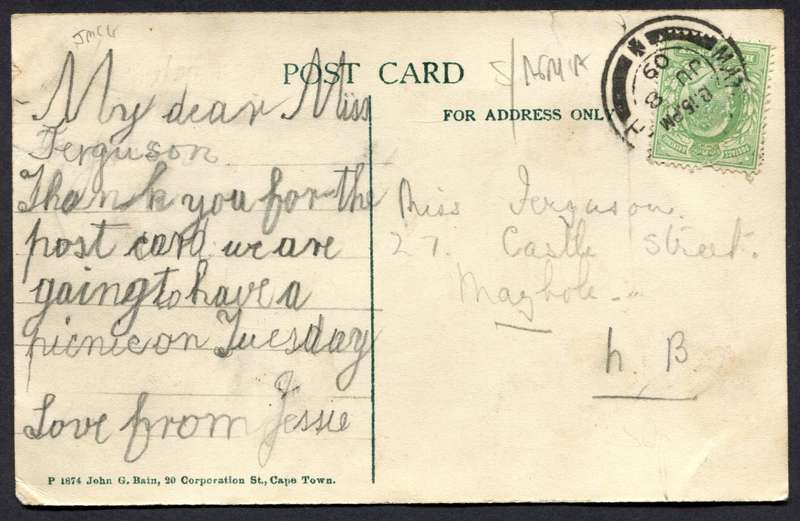 JMCG
POST CARD
FOR ADDRESS ONLY
My dear Miss
Ferguson
Thank you for the
post card we are
going to have a
picnic on Tuesday
Love from Jessie
Miss Ferguson.
27. Castle Street.
Maybole
N B
8 JU 09
12.15 PM
P 1874 John G. Bain, 20 Corporation St., Cape Town.